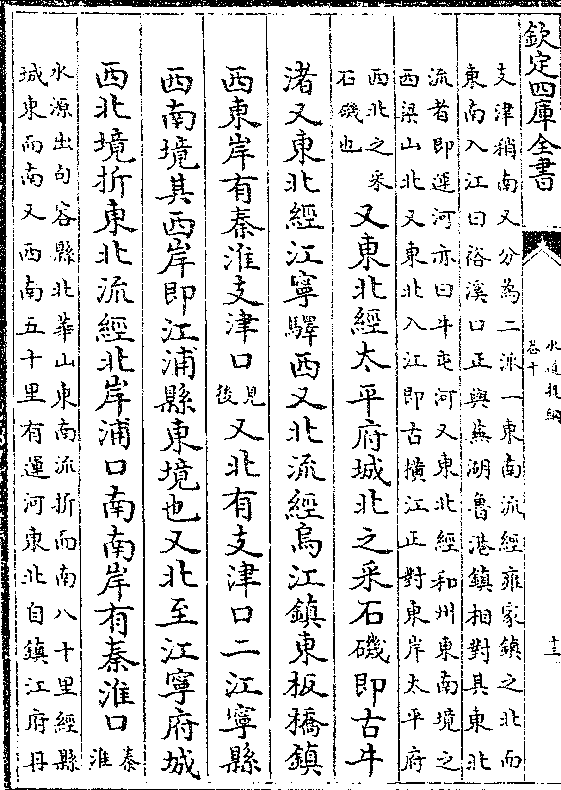 欽定四庫全書
水道提綱
卷十
十三
支津稍南又分為二派一東南流經雍家鎮之北而
東南入江曰裕溪口正與蕪湖魯港鎮相對其東北
流者即運河亦曰牛屯河又東北經和州東南境之
西梁山北又東北入江即古橫江正對東岸太平府
西北之采
石磯也
又東北經太平府城北之采石磯即古牛
渚又東北經江寧驛西又北流經烏江鎮東板橋鎮
西東岸有秦淮支津口
見
後
又北有支津口二江寧縣
西南境其西岸即江浦縣東境也又北至江寧府城
西北境折東北流經北岸浦口南南岸有秦淮口
秦
淮
水源出句容縣北華山東南流折而南八十里經縣
城東而南又西南五十里有運河東北自鎮江府丹